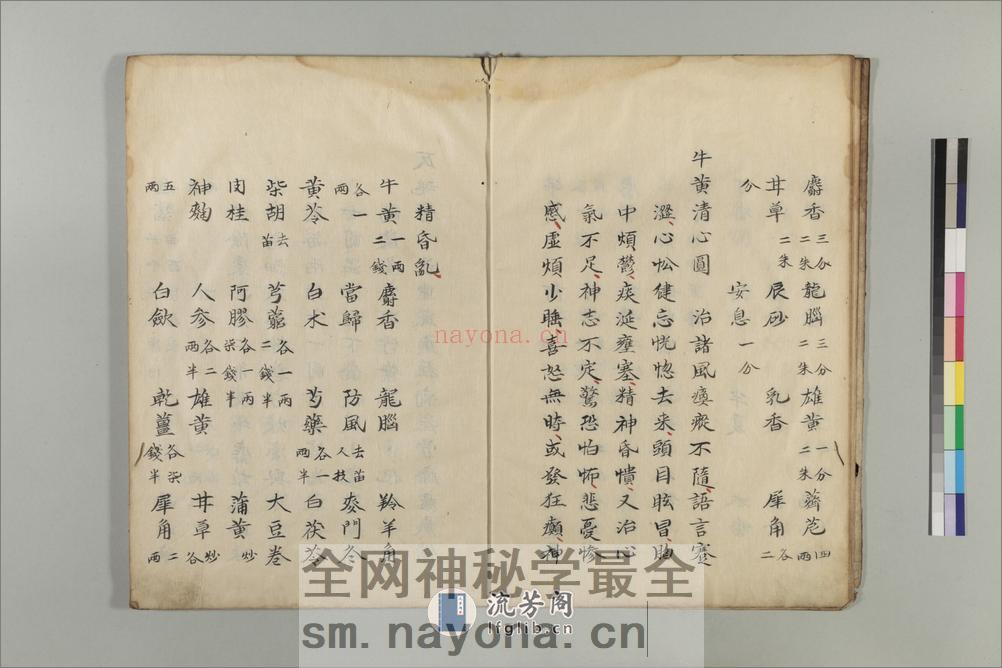 麝香三分二朱 龍腦三分二朱 雄黄一分二朱 薺苨四兩
甘草二朱 辰砂 乳香 犀角各二
分 安息一分
牛黄清心圓 治諸風瘓瘲不隨、語言蹇
澀、心忪健忘恍惚去来、頭目眩冒胸
中煩鬱、痰涎壅塞、精神昏憒、又治心
氣不足、神志不定、驚恐怕怖、悲憂惨
慼、虚煩少睡、喜怒無時、或發狂癲、神
精昏亂、
牛黄一兩二錢 麝香 龍腦 羚羊角
各一兩 當歸 防風去苗人技 麥門冬
黄芩 白朮 芍藥各一兩半 白茯苓
柴胡去苗 芎藭各一兩二錢半 大豆卷
肉桂 阿膠各一兩柒錢半 蒲黄炒
神麹 人参各二兩半 雄黄 甘草炒各
五兩 白歛 乾薑各柒錢半 犀角二兩
nayona.cn
全网神秘学最全
流芳阁
lfglib.cn
sm.nayona.cn